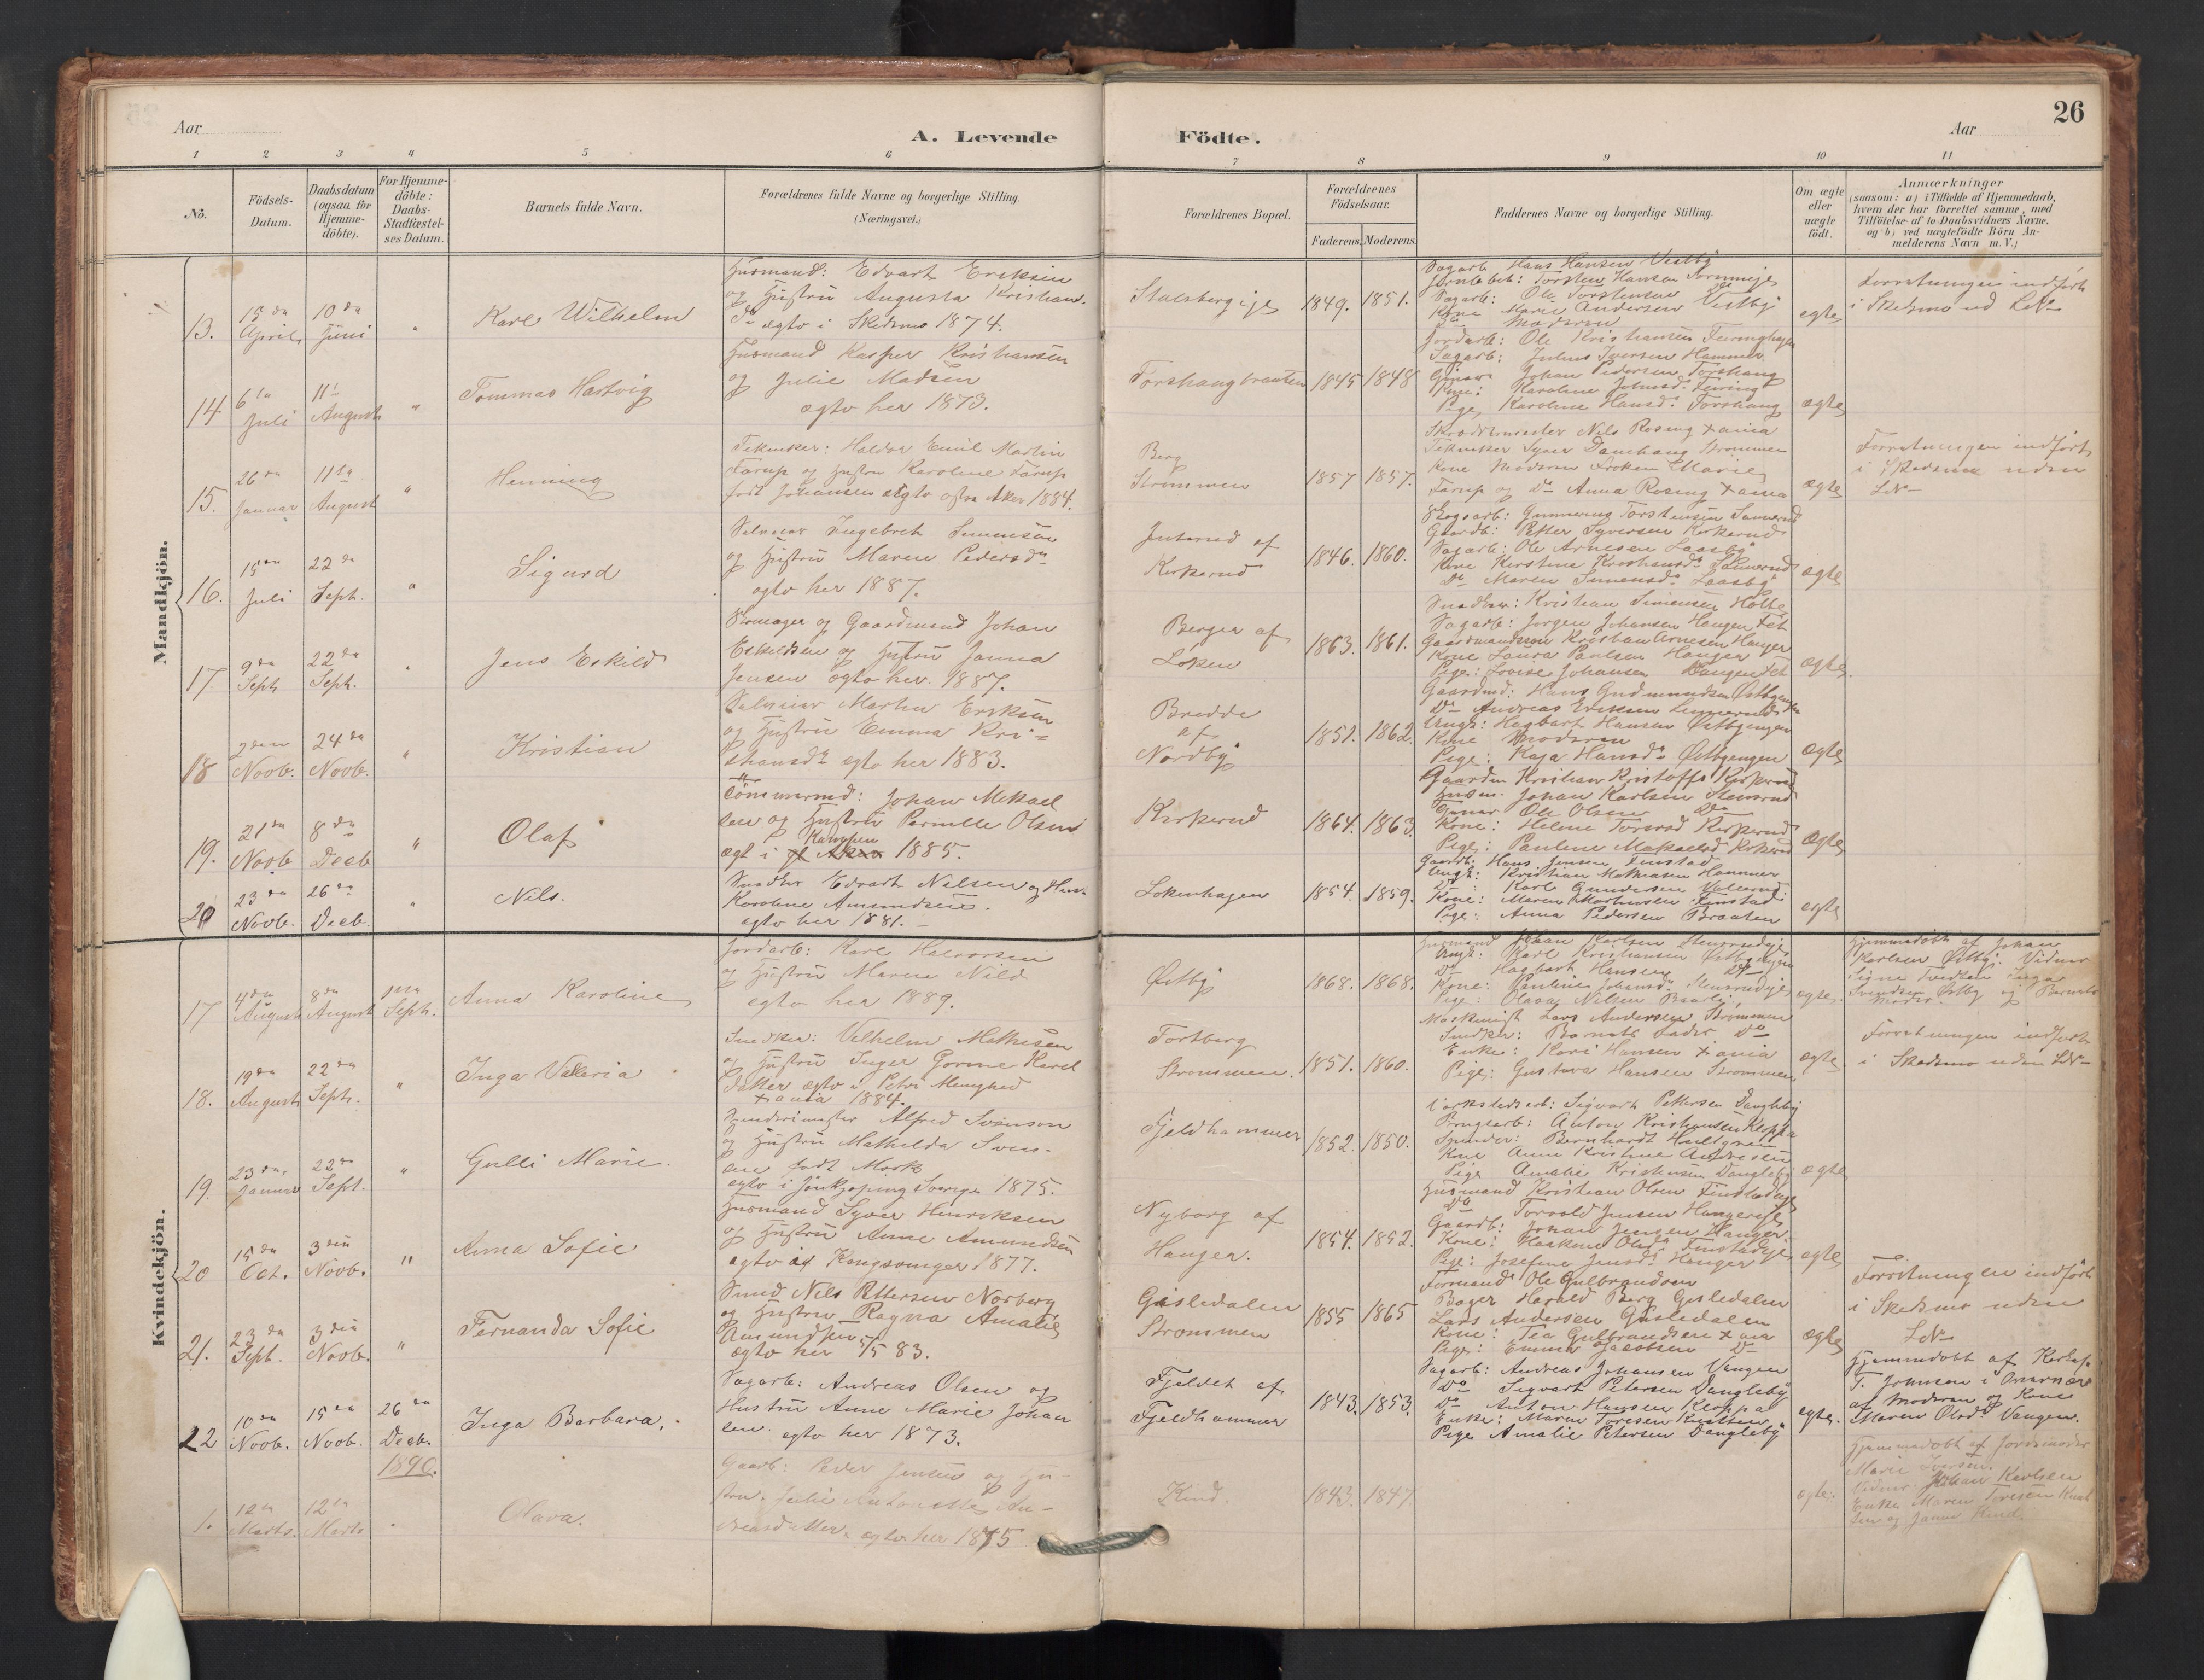 Aar
A. Levende Födte.
Aar
26
1 2 3 4 5 6 7 8 9 10 11
No.
Födsels-Datum.
Daabsdatum (ogsaa for Hjemme-döbte).
For Hjemme-döbte: Daabs-Stadfæstel-ses Datum.
Barnets fulde Navn.
Forældrenes fulde Navne og borgerlige Stilling.
(Næringsvei.)
Forældrenes Bopæl.
Forældrenes Födselsaar.
Faderens. Moderens.
Faddernes Navne og borgerlige Stilling.
Om ægte eller uægte födt.
Anmærkninger
(saasom: a) i Tilfælde af Hjemmedaab,
hvem der har forrettet samme, med
Tilföielse af to Daabsvidners Navne.
og b) ved uægtefödte Börn An-
melderens Navn m. V.)
Mandkjön.
13.
15de April
10de Juni
"
Karl Wilhelm
Husmand: Edvart Eriksen
og Hustru Augusta Kristian-
egtv i Skedsmo 1874.
Stalsbergeje
1849. 1851.
Sagarb Hans Hansen Vestby
Torsten Hansen
Sagarb: Ole Torstensen
Kone Marie Andersen Vestby
Do Moderen
egte
Forretningen indfört
i Skedsmo
14
6te Juli
11te August
"
Tommas Hartvig
Husmand Kasper Kristiansen
og Julie Madsen
egtv her 1873.
Torshaugbraaten
1845 1848
Jordarb: Ole Kristiansen
Sagarb: Julius Iversen Hammer
Johan Pedersen Torshaug
Kone: Karoline Johnsd. Feiring
Pige, Karoline Hansd. Torshaug
egte
15.
26de Januar
11te August
"
Henning
Tekniker: Haldor Emil Martin
Farup og Hustru Karoline Farup
født Johansen egtv østre Aker 1884.
Berg
Strømmen
1857 1857.
Skræddermester Nils Rosing Xania
Tekniker Syver Damhaug Strømmen
Kone Moderen Frøken Marie
Farup og Do Anna Rosing Xania
egte
Forretningen indfört
i Skedsmo uden
LNo
16.
15de Juli
22de Sept.
"
Sigurd
Selveier Ingebret Simensen
og Hustru Maren Pedersdr
egtv her 1887.
Interud af
Kirkerud
1846. 1860.
Skogsarb: Gunnerius Torstensen
Gaardb: Petter Syversen Kirkerud
Sagarb: Ole Arnesen Laasby
Kone Kirstine Kristiansdr
Do Maren Simensdr Laasby
egte
17.
9de Sept
22de Sept.
"
Jens Eskild
Skomager og Gaardmand Johan
Eskildsen og Hustru Janna
Jensen egtv her. 1887.
Berger af
Løken
1863. 1861.
Snedker: Kristian Simensen Holtet
Sagarb: Jørgen Johansen Haugen Fet
Gaardmandssøn Kristian Arnesen Hauger
Kone Laura Paulsen Hauger
Pige: Lovise Johansen Haugen Fet
egte
18
2den Novb.
24de Novb.
"
Kristian
Selveier Martin Eriksen
og Hustru Emma Kri-
stiansdr egtv her 1883.
Bredde
af
Nordby
1851. 1862.
Gaardmd: Hans Gudmundsen Østbyengen
Do Andreas Eriksen
Ungk: Hagbart Hansen Østbyengen
Kone Moderen
Pige: Kaja Hansdr Østbyengen
egte
19.
21de Novb
8de Decb
"
Olaf
Tømmermd: Johan Mikael
sen og Hustru Pernille Olsen
egt i 1885.
Kirkerud
1864. 1863.
Gaardm Kristian Kristoffs Kirkerud
Husm. Johan Karlsen Stensrud
Ole Olsen Do
Kone: Helene Kirkerud
Pige: Pauline Mikaelsd Kirkerud
egte
20
23de Novb.
26de Decb.
"
Nils.
Snedker Edvart Nilsen og Hu.
Karoline Amundsen.
egtv her 1881.
Løkenhagen
1854. 1859.
Gaardb: Hans Jensen Finstad
Ungk: Kristian Mathiasen Hammer
Do: Karl Gundersen
Kone: Maren Finstad
Pige: Anna Pedersen Braaten
egte
Kvindekjön.
17
4de August
8de August
1ste Sept.
Anna Karoline
Jordarb: Karl Halvorsen
og Hustru Maren Nilsd
egtv her 1889.
Østby
1868. 1868.
Husmand Johan Karlsen Stensrudeje
Ungk: Karl Kristiansen Østbyengen
Do Hagbart Hansen Do
Kone: Pauline Johansdr Stensrudeje
Pige: Olava Nilsen
egte.
Hjemmedøbt af Johan
Karlsen Østby. Vidner
Signe Inga
Svendsen Østby og Barnets
Moder.
18.
19de August
22de Sept.
"
Inga Valeria
Snedker: Vilhelm Mathisen
og Hustru Inger Gorine Karel
datter egtv i Petri Menighed
Xania 1884.
Tortberg
Strømmen.
1851. 1860.
Maskinist Lars Andersen Strømmen
Snedker: Barnets Fader Do
Enke: Kari Hansen Xania
Pige: Gustava Hansen Strømmen
egte
Forretningen indfört
i Skedsmo uden LNo
19.
23de Januar
22de Sept.
"
Gulli Marie.
Spinderimester Alfred Svenson
og Hustru Mathilda Sven-
sen født Mork
egtv i Jönkjøping Sverige 1875.
Fjeldhammer
1852. 1850.
Verkstedsarb: Sigvart Pettersen Dangleby
Brugsarb: Anton Kristiansen Kloppa
Spinder: Bernhardt Hultgren
Kone Anne Kristine Andresen
Pige Amalie Kristiansen Dangleby
egte
20
15de Oct.
3die Novb.
"
Anna Sofie
Husmand Syver Henriksen
og Hustru Anne Amundsen
egtv i Kongsvinger 1877.
Nyborg af
Hauger.
1854. 1852.
Husmand Kristian Olsen Finstadeje
Do Torvald Jensen Haugereje
Gaardb: Johan Jensen Hauger
Kone: Olsd. Finstadeje
Pige: Josefine Jensd. Hauger
egte
21.
23de Sept.
3die Novb.
"
Fernanda Sofie
Smed Nils Pettersen Norberg
og Hustru Ragna Amalie
Amundsen
egtv her 5/5 83.
Gasledalen
Strømmen
1855 1865
Formand Ole Gulbrandsen
Bager Harald Berg Gasledalen
Lars Andersen Gasledalen
Kone: Tea Gulbrandsen Xania
Pige: Emma Jacobsen Do
egte
Forretningen indfört
i Skedsmo uden
LNo
22
10de Novb.
15de Novb.
26de Decb.
Inga Barbara.
Sagarb: Andreas Olsen og
Hustru Anne Marie Johan
sen. egtv her 1873.
Fjeldet af
Fjeldhammer
1843. 1853.
Sagarb: Andreas Johansen Vangen
Do Sigvart Petersen Dangleby
Do Anton Hansen Kloppa
Enke: Maren Toresen Knatten
Pige Amalie Petersen Dangleby
egte.
Hjemmedøbt af
T. Johnsen i
af Moderen og Kone
Maren Olsdr Vangen.
1890.
1.
12te Marts.
12te Marts
"
Olava.
Gaarb: Peder Jensen og Hu-
stru. Julie Antonette An-
dreasdatter. egtv her 1875
Kind.
1843. 1847.
egte.
Hjemmedøbt af Jordemoder
Marie Iversen.
Vidner: Johan Karlsen
Enke Maren Toresen Knat
ten og Janna Kind.